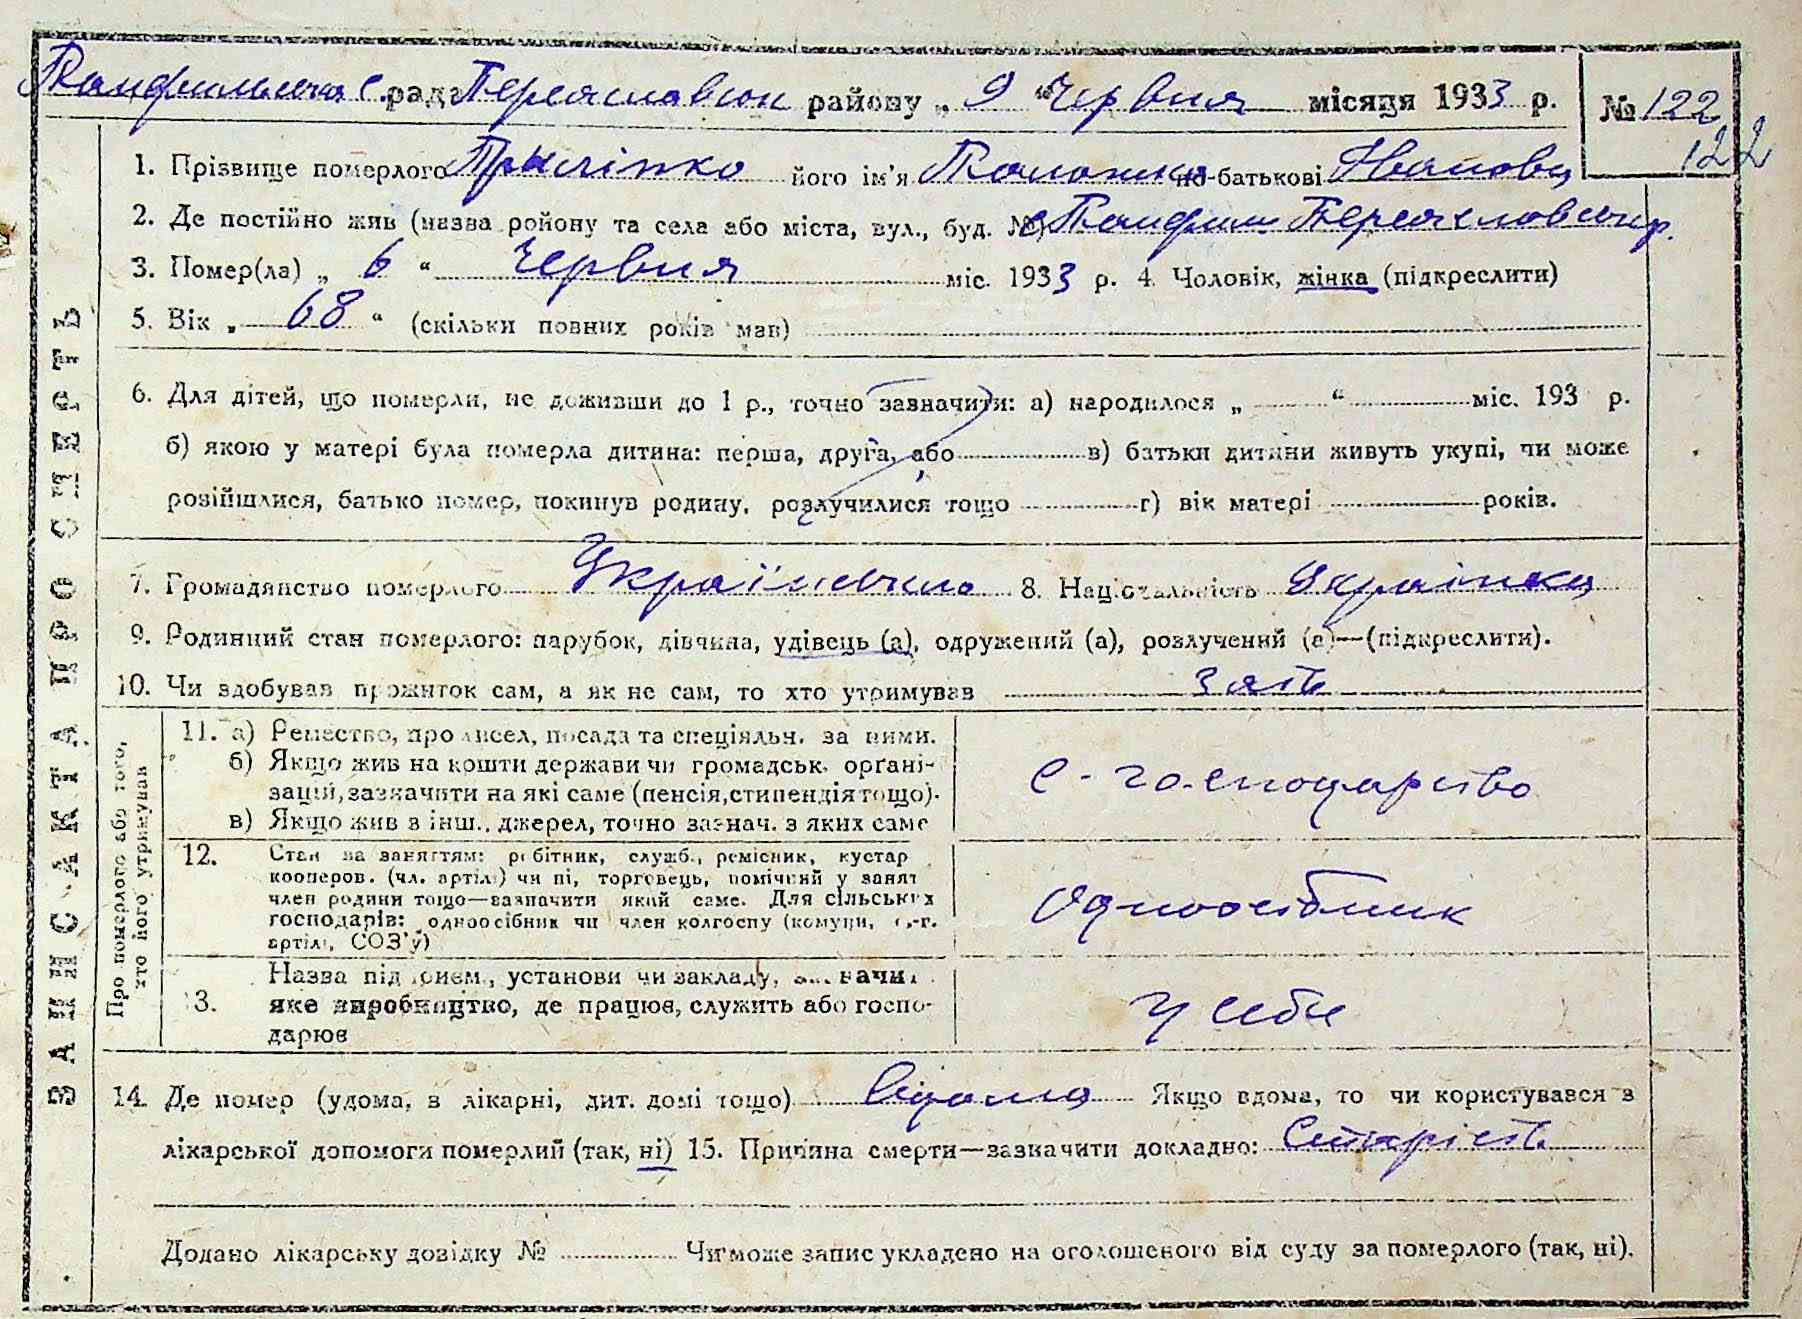 Панфильська с. рада Переяславськ району „ 9 “ Червня місяця 1933 р. № 122
122
1. Прізвище померлого Прыліпко його ім'я по-батькові Івановн
2. Де постійно жив (назва ройону та села або міста, вул., буд. №) с Панфили Переяславськ р.
3. Помер(ла) „ 6 “ Червня міс. 1933 р. 4. Чоловік, жінка (підкреслити)
5. Вік „ 68 “ (скільки повних років мав)
6. Для дітей, що померли, не доживши до 1 р., точно зазначити: а) народилося „ “ міс. 193 р.
б) якою у матері була померла дитина: перша, друга, або в) батьки дитини живуть укупі, чи може
розійшлися, батько помер, покинув родину, розлучилися тощо г) вік матері років.
7. Громадянство померлого Українське 8. Національність Українка
9. Родинний стан померлого: парубок, дівчина, удівець (а), одружений (а), розлучений (а)—(підкреслити).
10. Чи здобував прожиток сам, а як не сам, то хто утримував зять
ЗАПИС АКТА ПРО СМЕРТЬ
Про померлого або того, хто його утримував
11. а) Ремество, промисел, посада та спеціяльн. за ними.
б) Якщо жив на кошти держави чи громадськ. органі-
зацій, зазначити на які саме (пенсія, стипендія тощо).
в) Якщо жив з інш. джерел, точно зазнач. з яких саме
с-господарство
12. Стан за заняттям: робітник, служб., ремісник, кустар
кооперов. (чл. артілі) чи ні, торговець, помічний у занят
член родини тощо—зазначити який саме. Для сільських
господарів: одноосібник чи член колгоспу (комуни, с.-г.
артілі, СОЗ'у)
Одноосібник
13. Назва підприєм., установи чи закладу, зазначит
яке виробництво, де працює, служить або госпо-
дарює
у себе
14. Де помер (удома, в лікарні, дит. домі тощо) Вдома Якщо вдома, то чи користувався з
лікарської допомоги померлий (так, ні) 15. Причина смерти—зазначити докладно: Старість
Додано лікарську довідку № Чи може запис укладено на оголошеного від суду за померлого (так, ні).